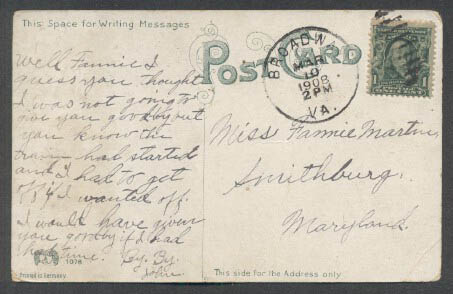 This Space for Writing Messages
POST CARD
BROADW
MAR
10
1908
2 PM
VA.
Well Fannie I
guess you thought
I was not going to
give you goodby but
you know the
train had started
and I had to get
off if I wanted off.
I would have given
you goodby if I had
had time. By. By.
John.
Miss Fannie Martin
Smithburg.
Maryland.
1078
Printed in Germany
This side for the Address only